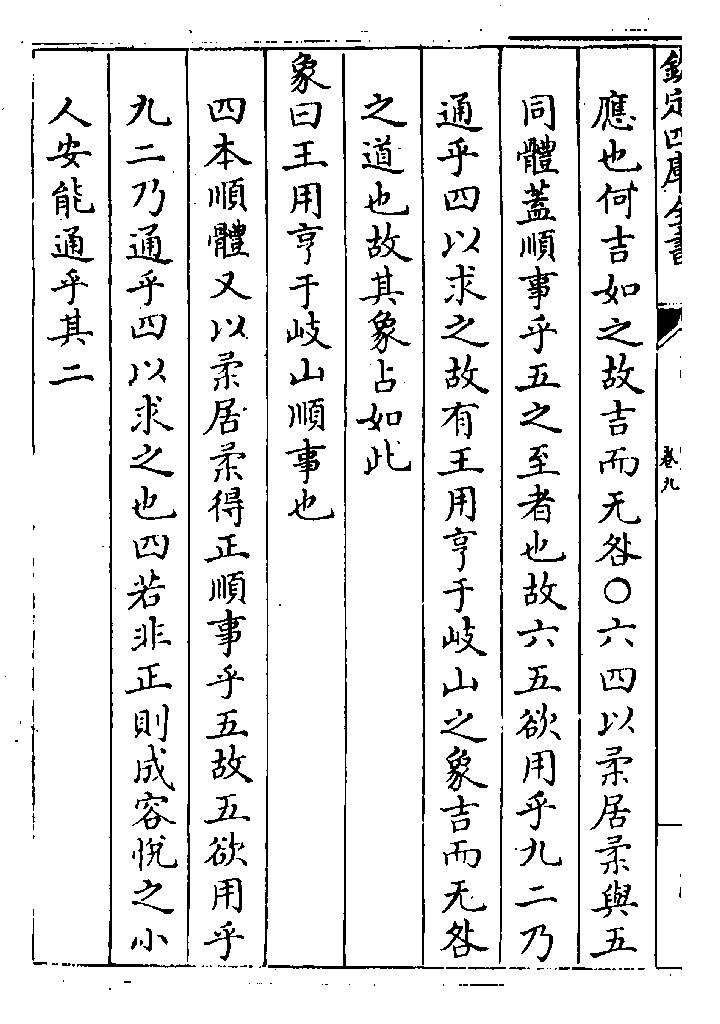 欽定四庫全書
卷九
應也何吉如之故吉而无咎○六四以柔居柔與五
同體蓋順事乎五之至者也故六五欲用乎九二乃
通乎四以求之故有王用亨于岐山之象吉而无咎
之道也故其象占如此
象曰王用亨于岐山順事也
四本順體又以柔居柔得正順事乎五故五欲用乎
九二乃通乎四以求之也四若非正則成容悅之小
人安能通乎其二